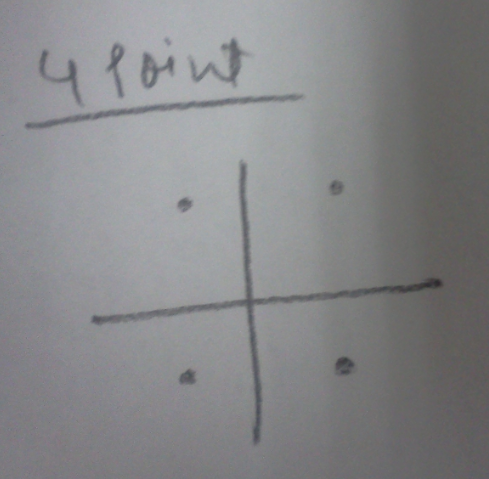 4 Point